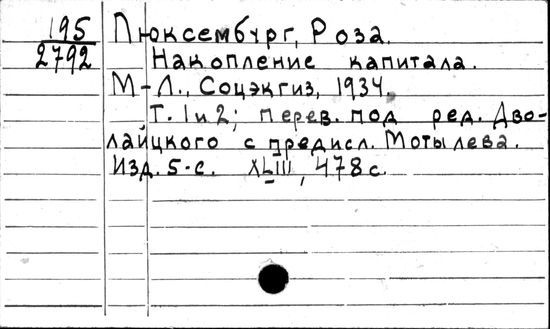 195
2792
Люксембург, Роза.
Накопление капитала.
М-Л., Соцэкгиз, 1934.
Т. 1 и 2; перев. под ред. Дво-
лайцкого с предисл. Мотылева.
Изд. 5-е. XLIII, 478 с.